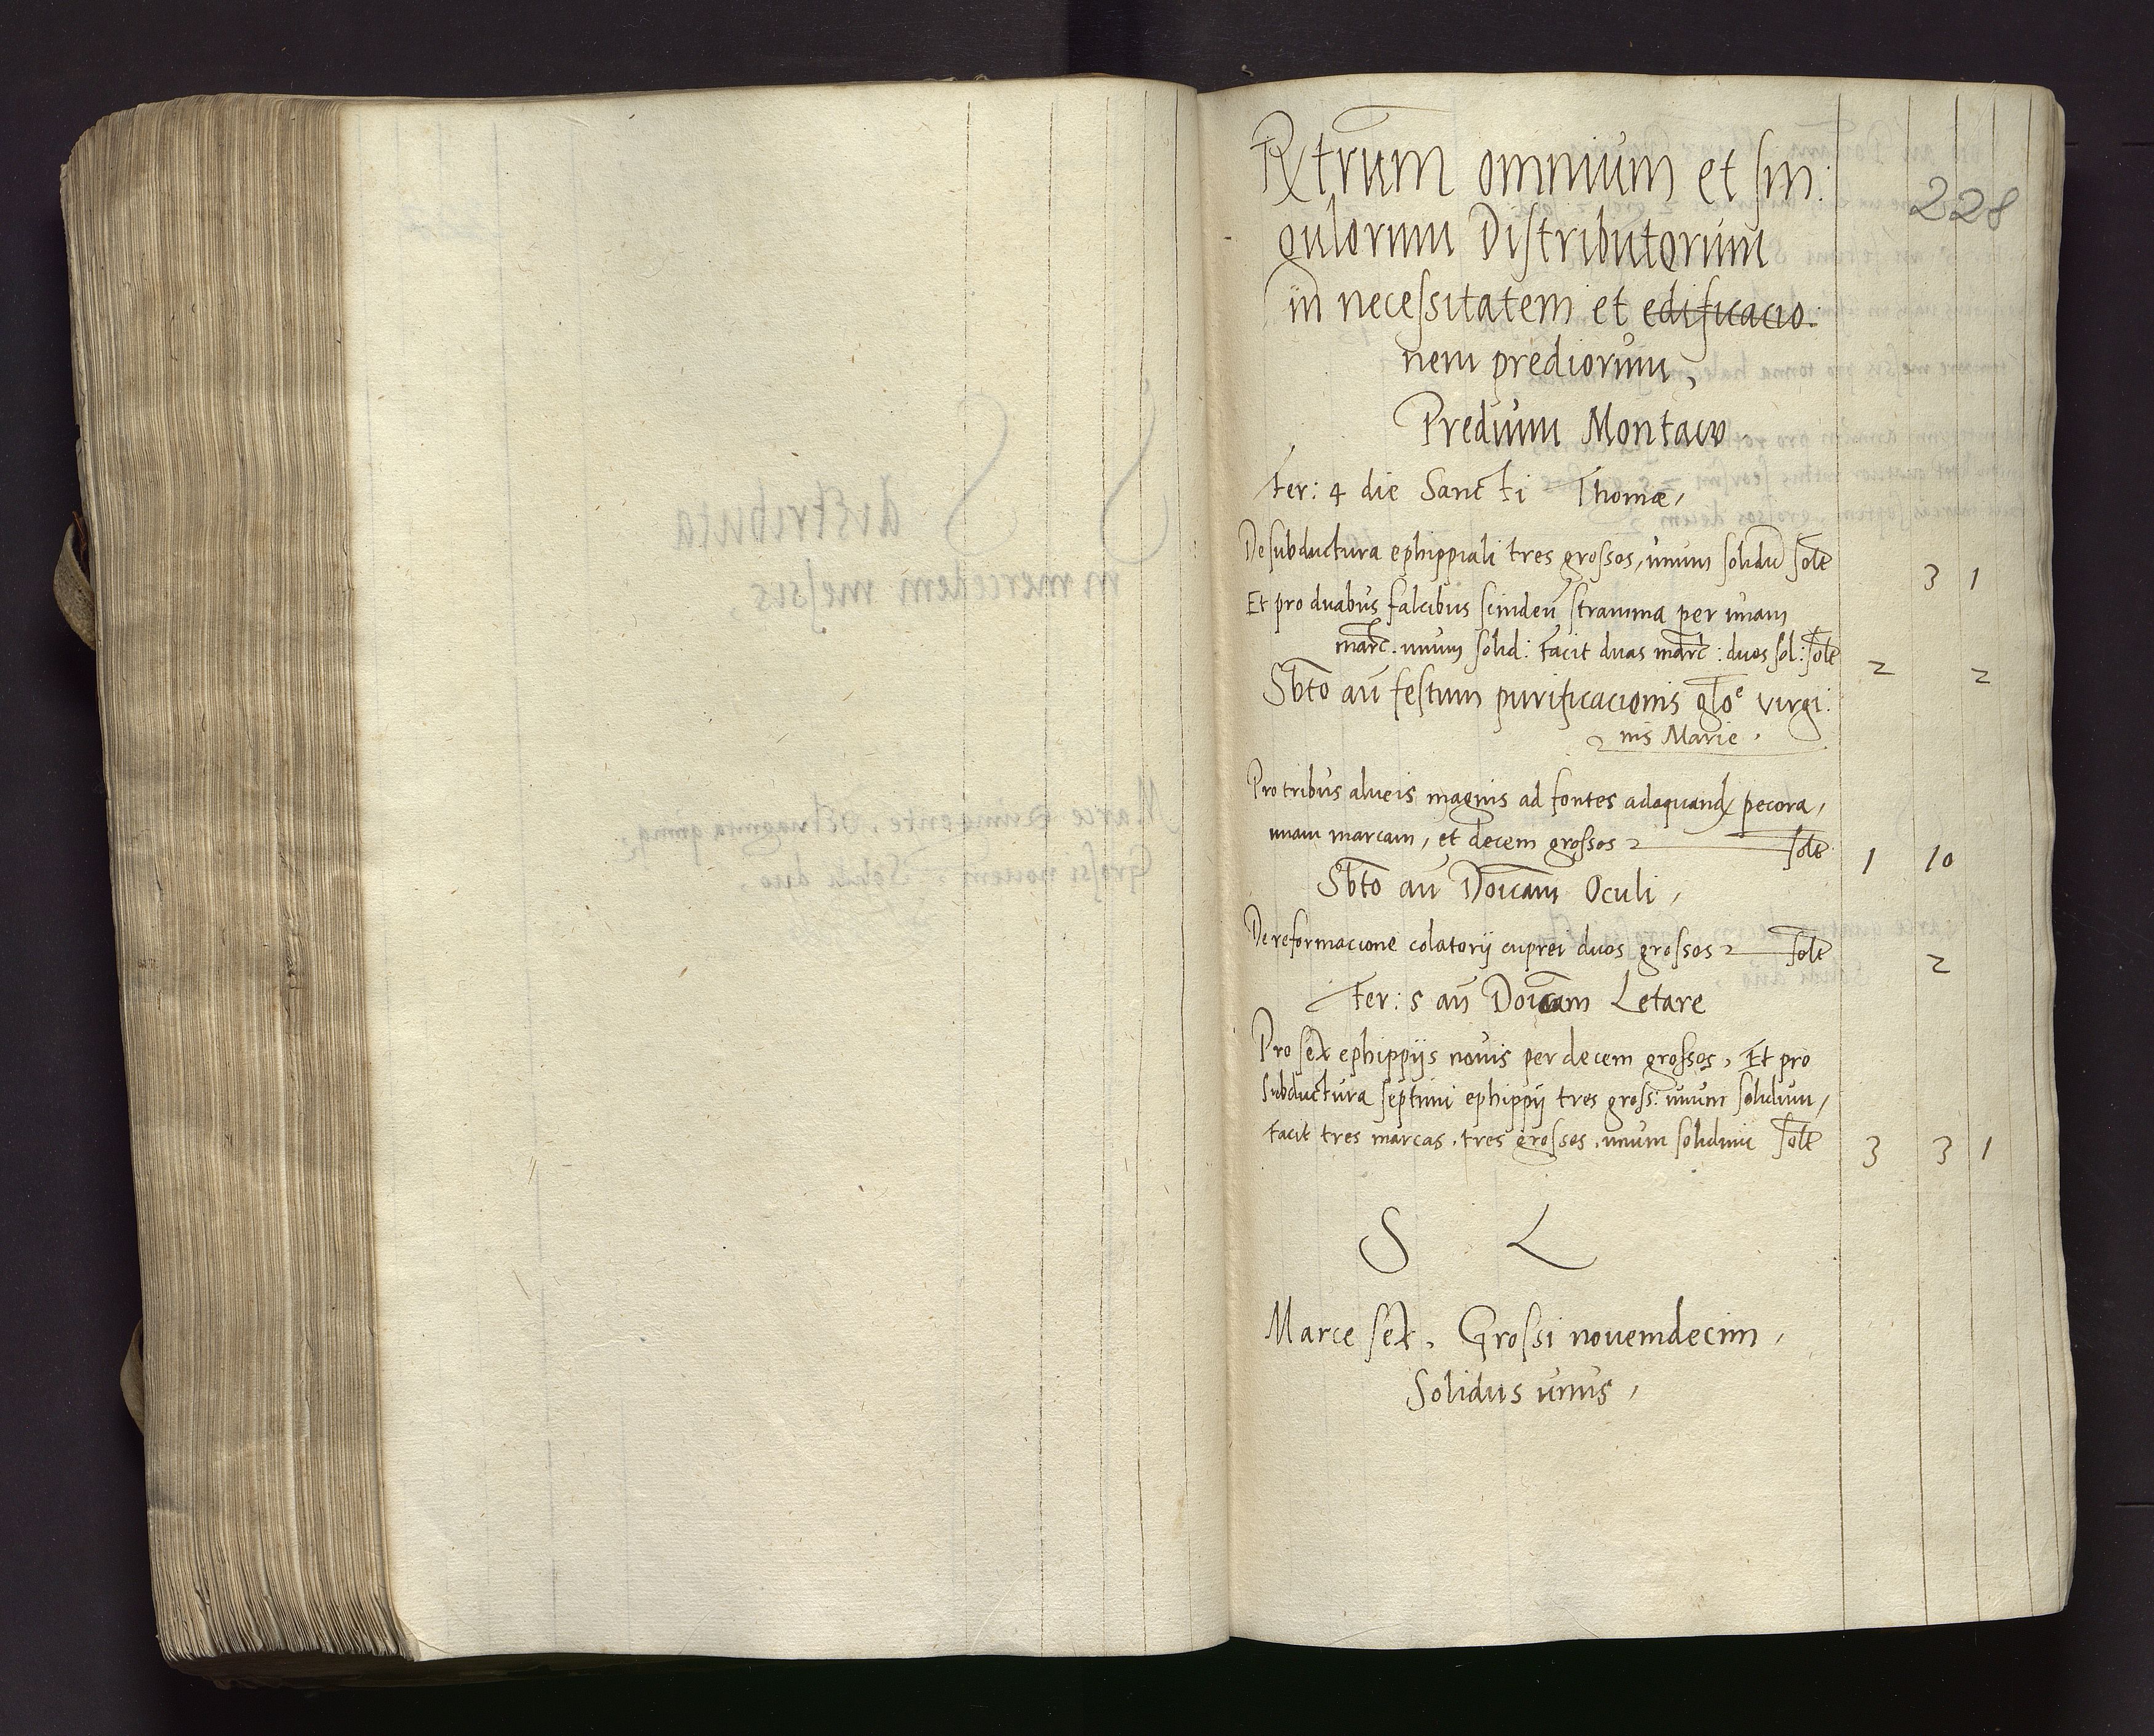 Rx̄trum omnium et sin:
gulorum Distributorum
in necessitatem et edificacio:
nem prediorum,
228
Predium Montaw.
Fer: 4 die Sancti Thomæ,
De subductura ephippiali tres grossos, unum solidū solt 3 1
Et pro duabus falcibus scindeñ stramina per unam
marc. unum solid: facit duas marc: duos sol: solt 2 2
Sbto añ festum purificacionis gloe virgi:
nis Marie.
Pro tribus alueis magnis ad fontes adaquand pecora,
unam marcam, et decem grossos solt 1 10
Sbto añ Doicam Oculi,
De reformacione colatorij cuprei duos grossos solt 2
Fer: 5 añ Doicam Letare
Pro sex ephippijs nouis per decem grossos, Et pro
subductura septimi ephippij tres gross: unum solidum,
facit tres marcas, tres grossos, unum solidum solt 3 3 1
S L
Marce sex. Grossi nouemdecim,
Solidus unus,